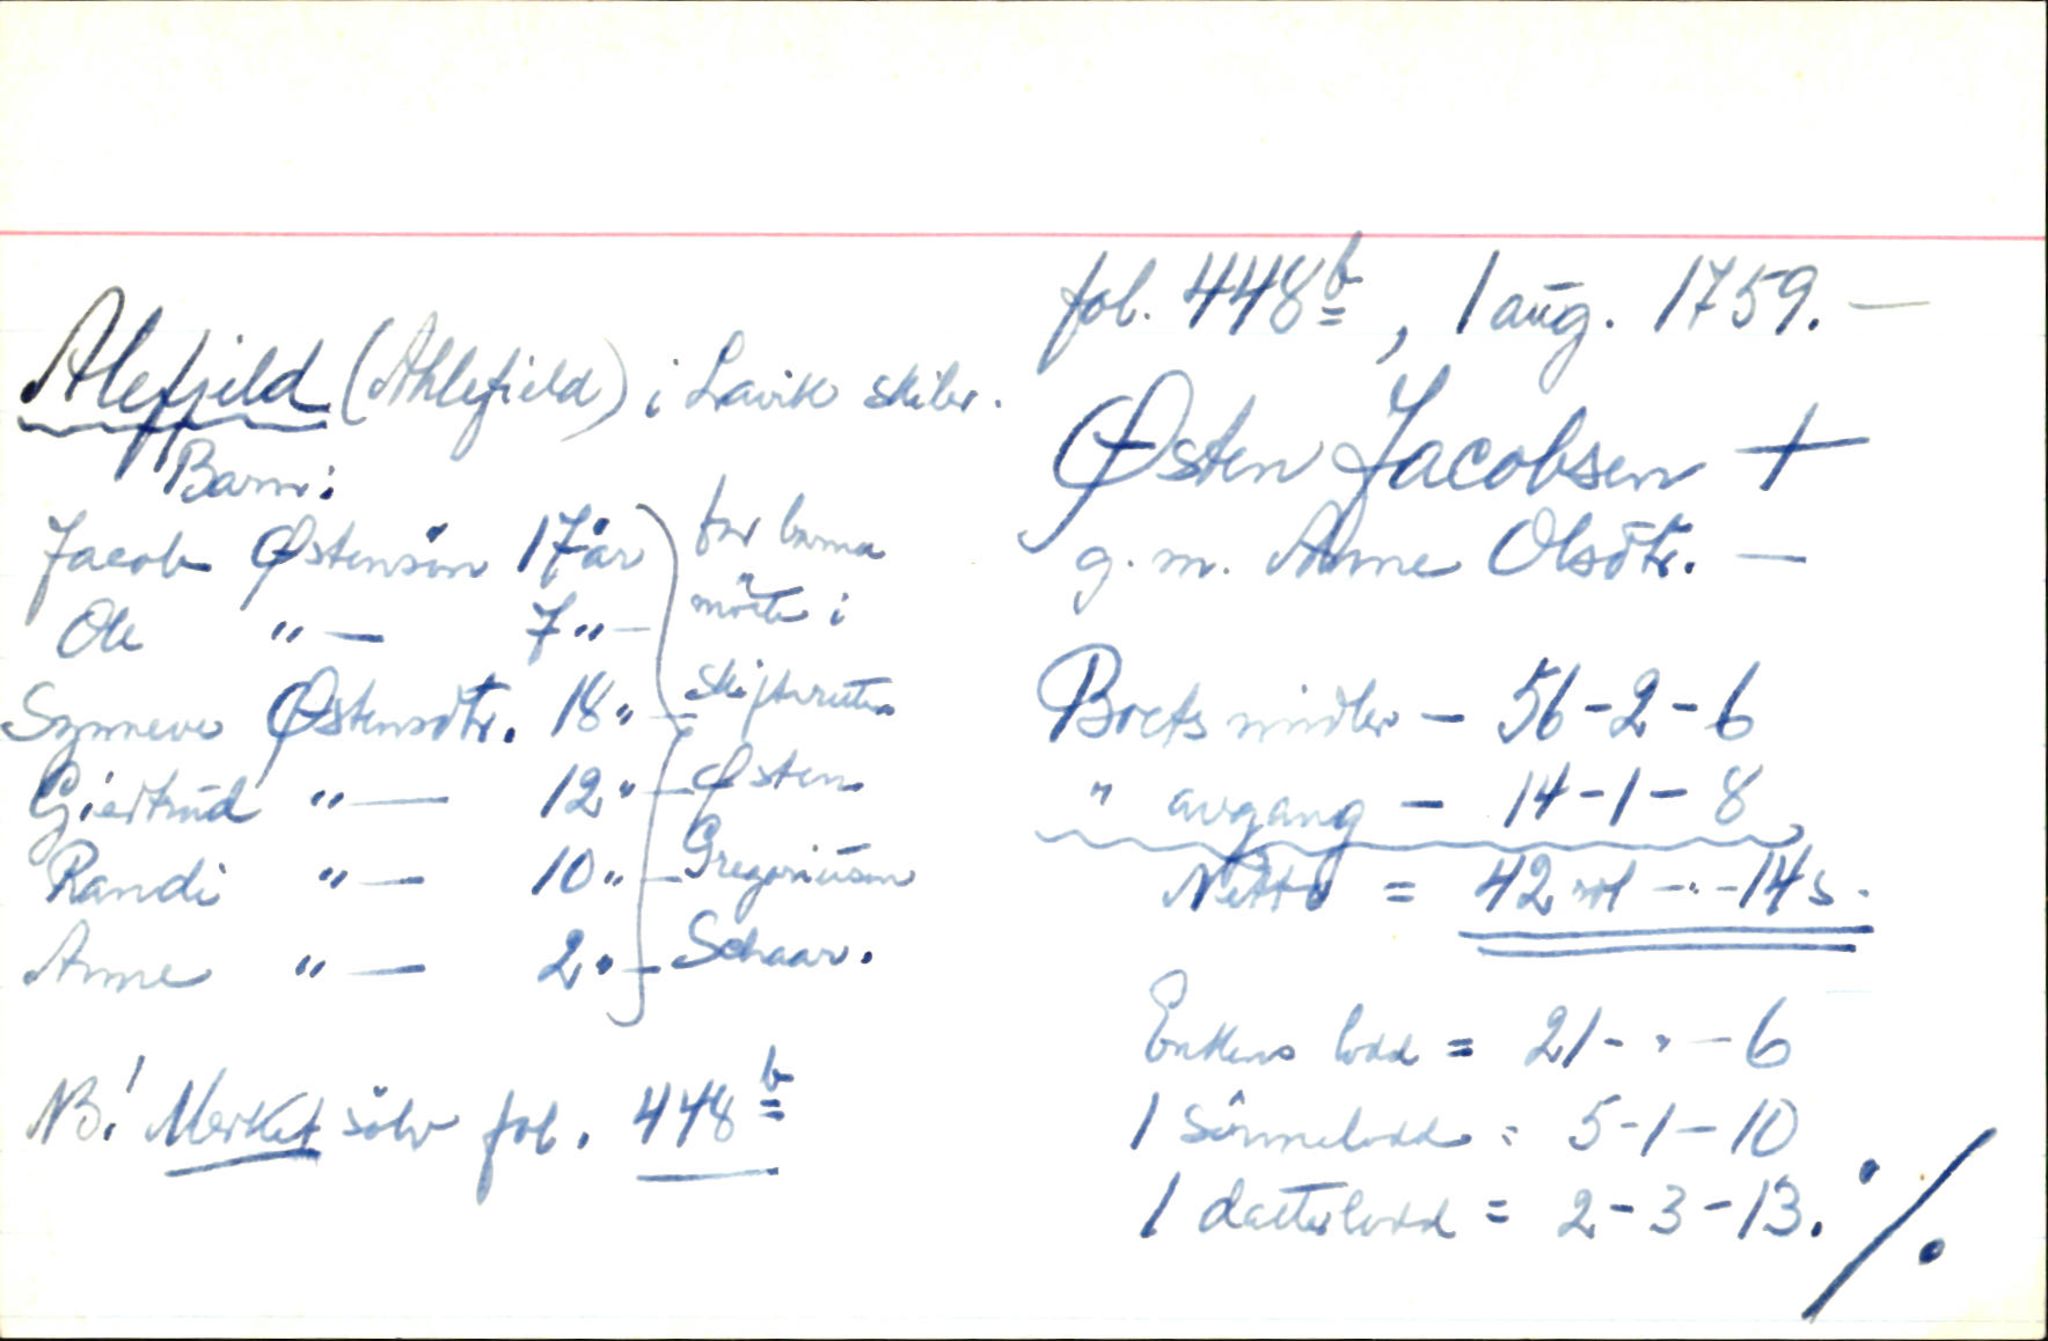 fol. 448b, 1 aug. 1759. —
Alefjeld (Ahlefjeld) i Lavik skibr.
Østen Jacobsen +
g. m. Anne Olsdtr. —
Barn:
Jacob Østensön 17 år
Ole " — 7 " —
Synneve Østensdtr. 18 " —
Giertrud " — 12 " —
Randi " — 10 " —
Anne " — 2 " —
for barna
mötte i
skifteretten
Østen
Gregoriusen
Schaar.
NB! Merket sölv fol. 448b
Boets midler — 56-2-6
" avgang — 14-1-8
Netto = 42 rdl - " - 14 s.
Enkens lodd = 21 - " - 6
1 sönnelodd = 5-1-10
1 datterlodd = 2-3-13. ./.